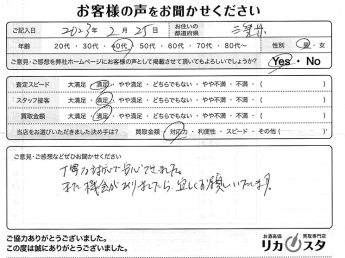 お客様の声をお聞かせください
ご記入日 2023年 2月 25日 お住いの都道府県 三重県
年齢 20代・30代・40代・50代・60代・70代・80代〜 性別 男・女
ご意見・ご感想を弊社ホームページにお客様の声として掲載させて頂いてもよろしいでしょうか? Yes・No
査定スピード 大満足・満足・やや満足・どちらでもない・やや不満・不満・( )
スタッフ接客 大満足・満足・やや満足・どちらでもない・やや不満・不満・( )
買取金額 大満足・満足・やや満足・どちらでもない・やや不満・不満・( )
当店をお選びいただきました決め手は? 買取金額・対応力・利便性・スピード・その他( )
ご意見・ご感想などぜひお聞かせください
丁寧な対応で安心できました。
また機会がありましたら、宜しくお願いいたします。
ご協力ありがとうございました。
この度は誠にありがとうございました。
お酒高価買取専門店
リカスタ